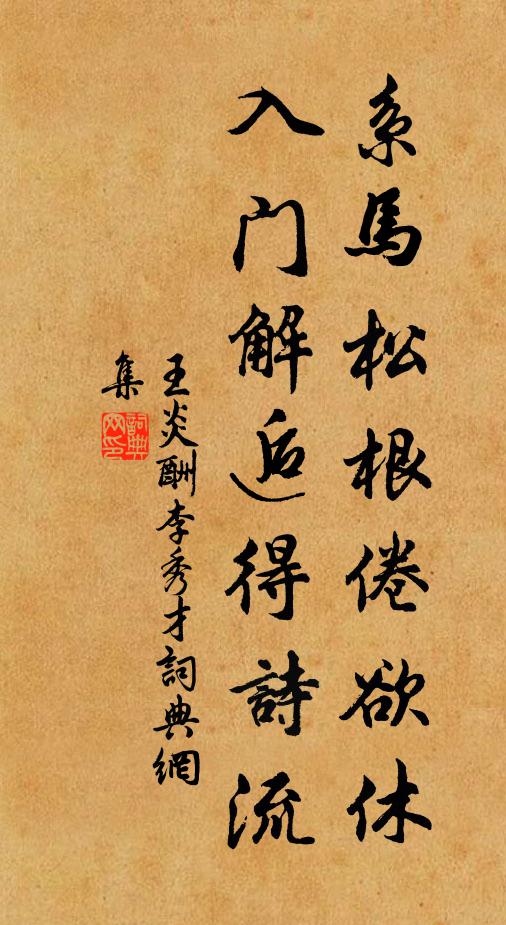 系馬松根倦欲休
入门解逅得詩流
王炎酬李秀才詞典網
集
詞典网印